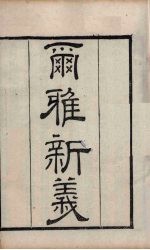 爾雅新義